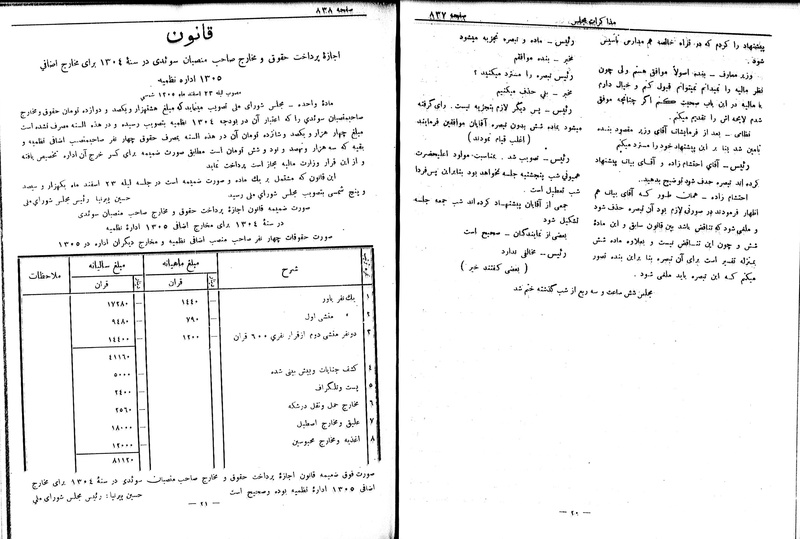 صفحه ۸۳۷
مذاکرات مجلس
پیشنهاد را کردم که در قراء خالصه هم مدارس تأسیس
شود.
وزیر معارف ـ بنده اصولاً موافق هستم ولی چون
نظر مالیه را نمیدانم نمیتوانم قبول کنم و خیال دارم
با مالیه در این باب صحبت کنم اگر چنانچه موفق
شدم لایحه اش را تقدیم میکنم.
نظامی ـ بعد از فرمایشات آقای وزیر مقصود بنده
تامین شد بنا بر این پیشنهاد خود را مسترد میکنم
رئیس ـ آقای احتشام زاده و آقای بیات پیشنهاد
کرده اند تبصره حذف شود توضیح بدهید..
احتشام زاده ـ همان طور که آقای بیات هم
اظهار فرمودند در صورتی لازم بود آن تبصره حذف شود
و ملغی شود که تناقض باشد بین قانون سابق و این مادهٔ
شش و چون این تناقض نیست و بعلاوه ماده شش
بمنزله تفسیر است برای آن تبصره بنا بر این بنده تصور
میکنم که این تبصره باید ملغی شود.
رئیس ـ ماده و تبصره تجزیه میشود
مخبر ـ بنده موافقم
رئیس تبصره را مسترد میکنید؟
مخبر ـ بلی حذف میکنیم
رئیس ـ پس دیگر لازم بتجزیه نیست. رأی گرفته
میشود بماده شش بدون تبصره آقایان موافقین قیام فرمایند
(اغلب قیام نمودند)
رئیس ـ تصویب شد. بمناسبت مولود اعلیحضرت
همیونی شب پنجشنبه جلسه نخواهد بود بنابراین پس فردا
شب تعطیل است.
جمعی از آقایان پیشنهاد کرده اند شب جمعه جلسه
تشکیل شود
بعضی از نمایندگان ـ صحیح است
رئیس ـ مخالفی ندارد
(بعضی گفتند خیر)
مجلس شش ساعت و سه ربع از شب گذشته ختم شد
ـ ۲۰ ـ
صفحه ۸۳۸
قانون
اجازهٔ پرداخت حقوق و مخارج صاحب منصبان سوئدی در سنهٔ ۱۳۰۴ برای مخارج اضافی
۱۳۰۵ اداره نظمیه
مصوب لیله ۲۳ اسفند ماه ۱۳۰۵ شمسی
ماده واحده ـ مجلس شورای ملی تصویب مینماید که مبلغ هشتهزار و یکصد و دوازده تومان حقوق و مخارج
صاحبمنصبان سوئدی را که اعتبار آن در بودجه ۱۳۰۴ نظمیه بتصویب رسیده و در همه السنه مصرف نشده است
مبلغ چهار هزار و یکصد و شانزده تومان آن در همه السنه بمصرف حقوق چهار نفر صاحبمنصب اضافی نظمیه و
بقیه که سه هزار و نهصد و نود و شش تومان است مطابق صورت ضمیمه برای کسر خرج آن اداره تخصیص یافته
و از این قرار وزارت مالیه مجاز است پرداخت نماید
این قانون که مشتمل بر یك ماده و صورت ضمیمه است در جلسه لیله ۲۳ اسفند ماه یکهزار و سیصد
و پنج شمسی بتصویب مجلس شورای ملی رسید
رئیس مجلس شورای ملی حسین پیرنیا
صورت ضمیمه قانون اجازهٔ پرداخت حقوق و مخارج صاحب منصبان سوئدی
در سنهٔ ۱۳۰۴ برای مخارج اضافی ۱۳۰۵ ادارهٔ نظمیه
صورت حقوقات چهار نفر صاحب منصب اضافی نظمیه و مخارج دیگران اداره در ۱۳۰۵
شرح مبلغ ماهیانه مبلغ سالیانه ملاحظات
قران قران
۱ یك نفر یاور ۱۴۴۰ ۱۷۲۸۰
۲ » مفتش اول ۷۹۰ ۹۴۸۰
۳ دو نفر مفتش دوم از قرار نفری ۶۰۰ قران ۱۲۰۰ ۱۴۴۰۰
۴۱۱۶۰
۴ کشف جنایات و پیش بینی شده ۵۰۰۰
۵ پست و تلگراف ۲۴۰۰
۶ مخارج حمل و نقل درشکه ۲۵۶۰
۷ علیق و مخارج اصطبل ۱۸۰۰۰
۸ اغذیه و مخارج محبوسین ۱۲۰۰۰
۸۱۱۲۰
صورت فوق ضمیمه قانون اجازهٔ پرداخت حقوق و مخارج صاحب منصبان سوئدی در سنهٔ ۱۳۰۴ برای مخارج
اضافی ۱۳۰۵ ادارهٔ نظمیه بوده و صحیح است
حسین پیرنیا: رئیس مجلس شورای ملی
ـ ۲۱ ـ